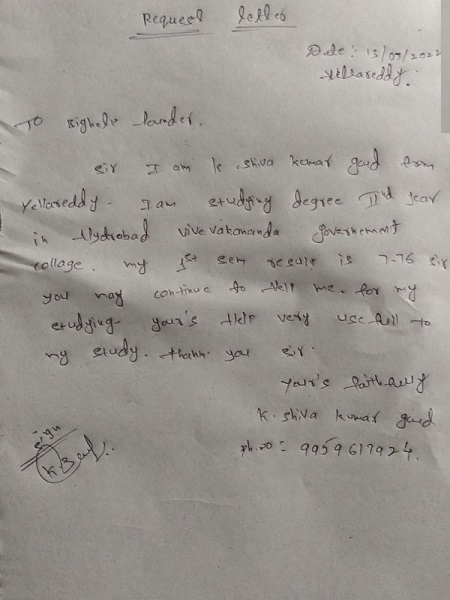 Request letter
Date: 13/09/2022
Yellareddy.
TO Bighelp founder.
sir I am K. Shiva kumar goud from
Yellareddy. I am studying degree IInd year
in Hydrobad vivevakananda governement
collage. my 1st sem result is 7.76 sir
you may continue to Help me. for my
studying. your's Help very usefull to
my study. thank you sir.
your's faithfully
K. Shiva kumar goud
sign
ph.no = 9959617924.
K. Goud..